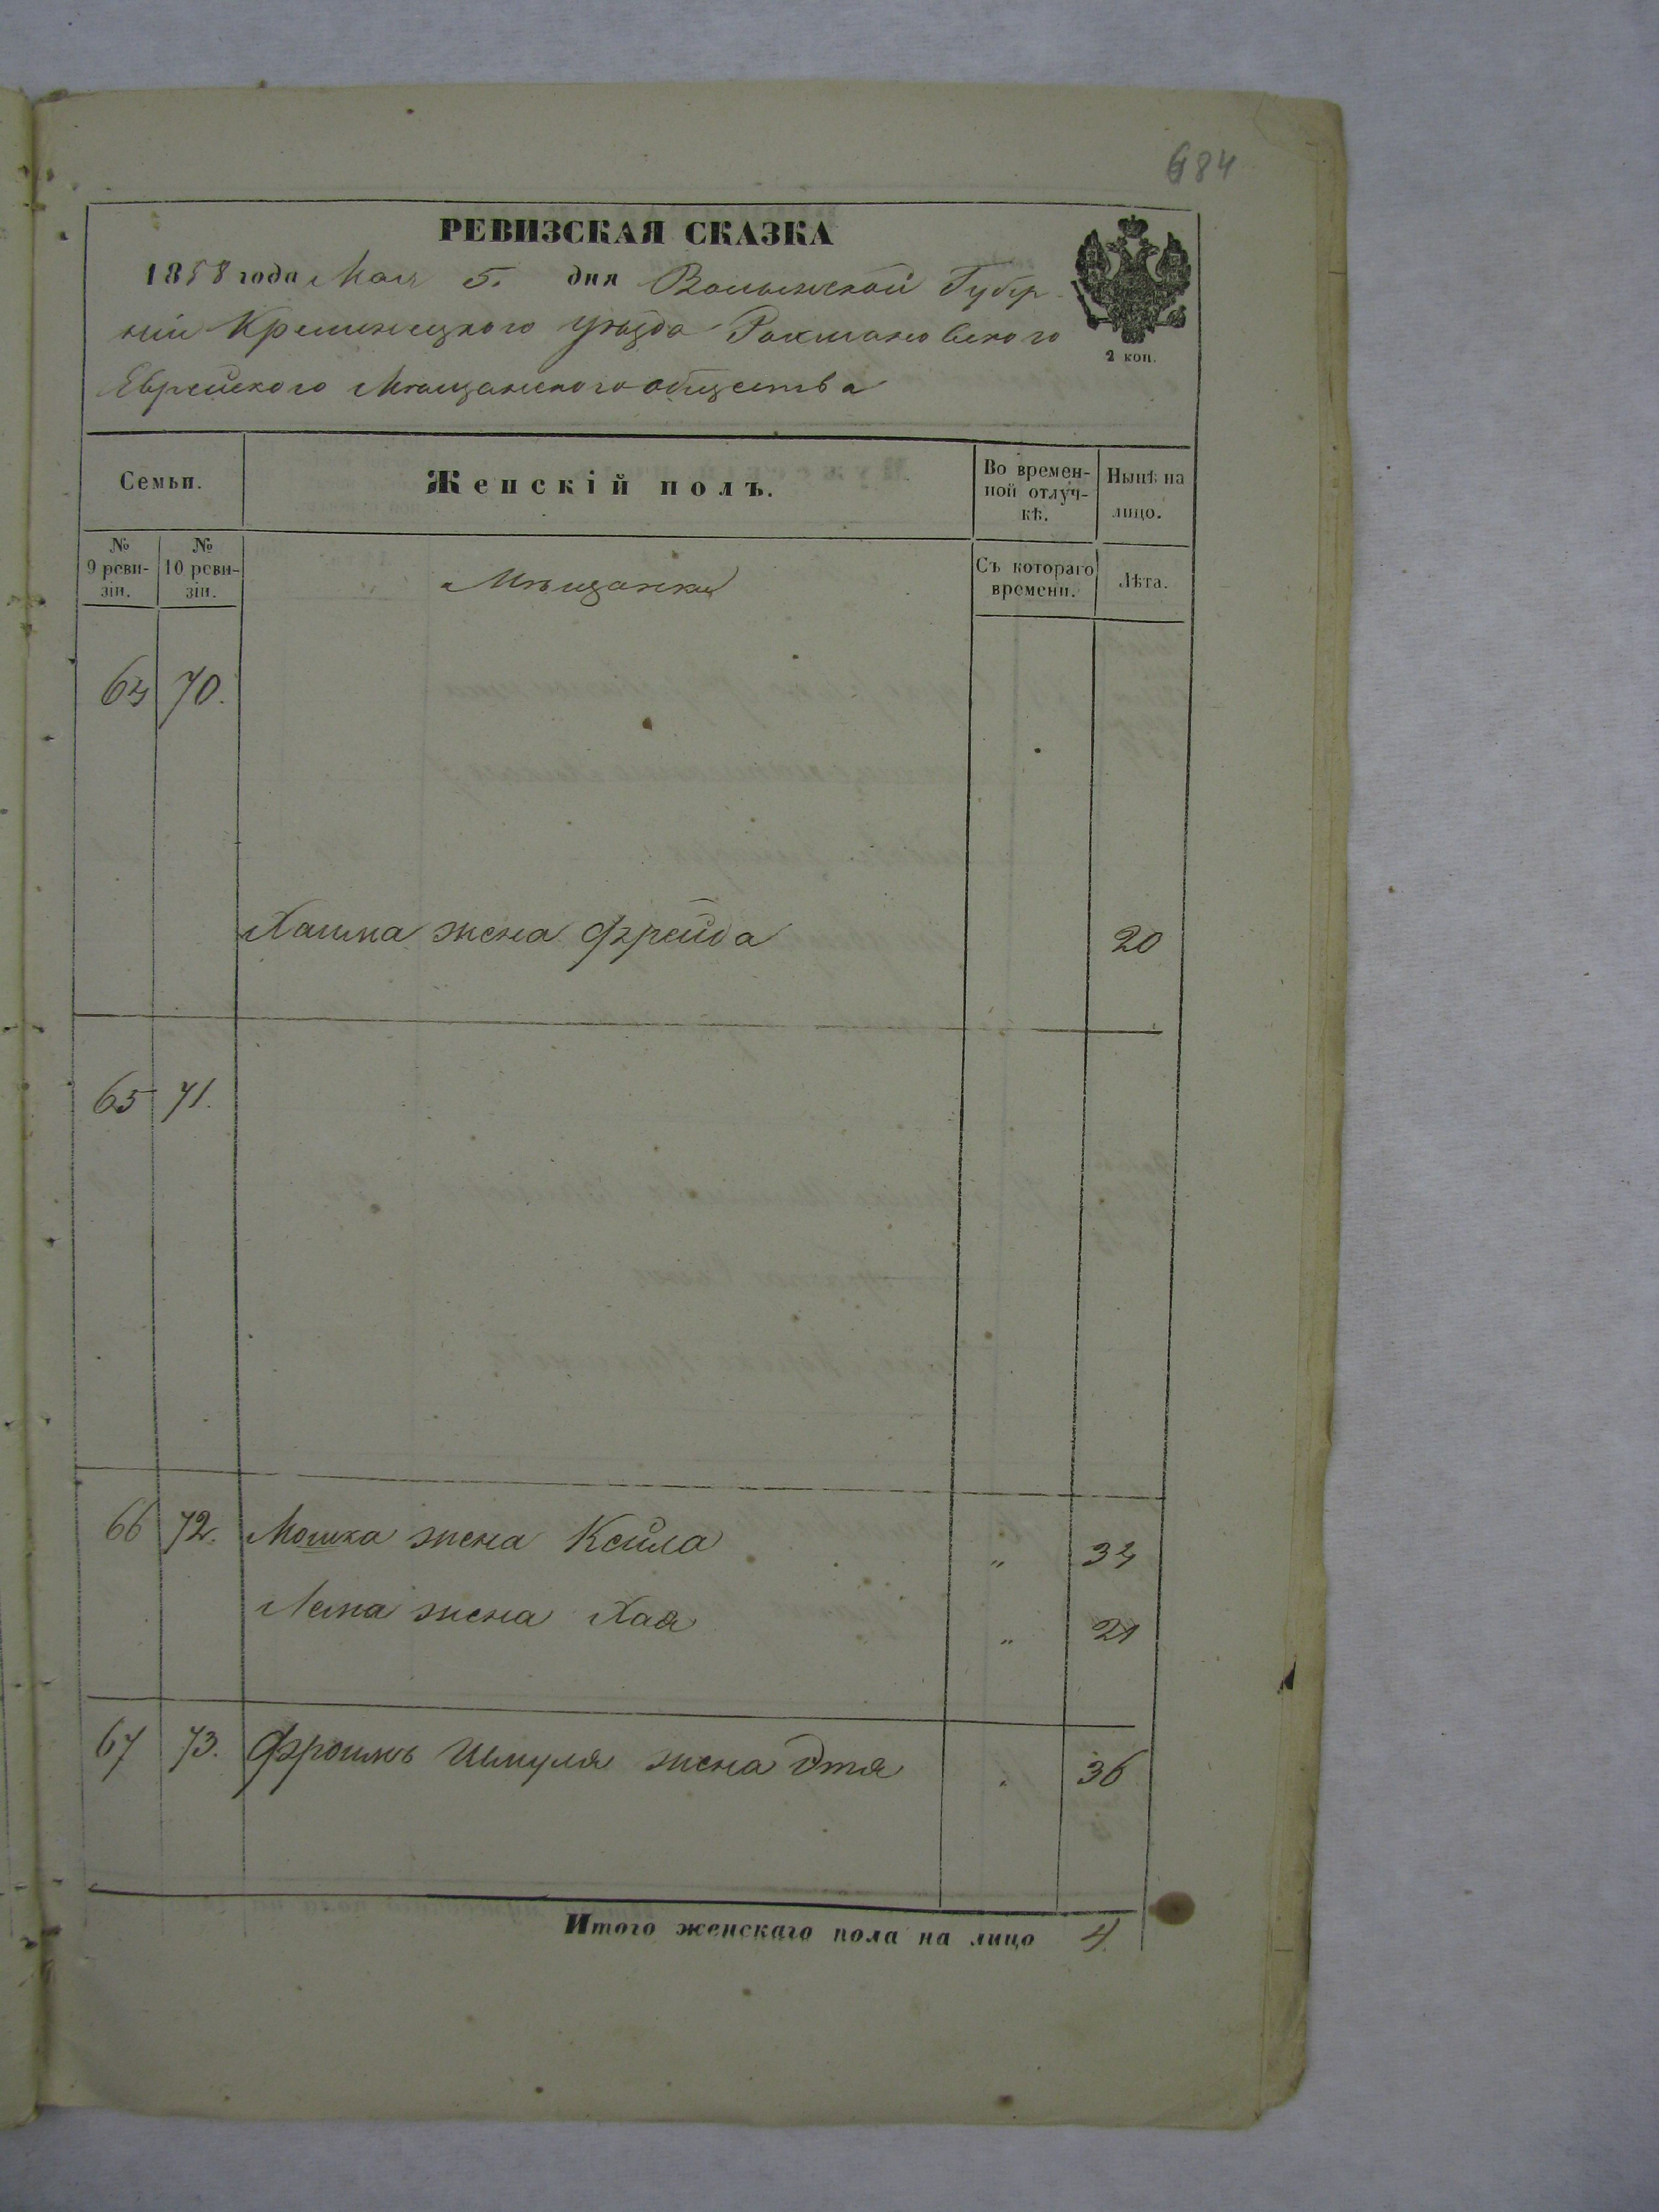 684
РЕВИЗСКАЯ СКАЗКА
1858 года Мая 5. дня Волынской Губер
ніи Кременецкого уѣзда Рахмановского
Еврейского Мѣщанского общества
2 коп.
Семьи.
Женскій полъ.
Во времен-
ной отлуч-
кѣ.
Нынѣ на
лицо.
№
9 реви-
зіи.
№
10 реви-
зіи.
Мѣщанки
Съ котораго
времени.
Лѣта.
64 70.
жена Фрейда 20
65 71.
66 72. Мошка жена Кейла „ 34
жена Хая „ 21
67 73. Шмуля жена Этя „ 36
Итого женскаго пола на лицо 4.